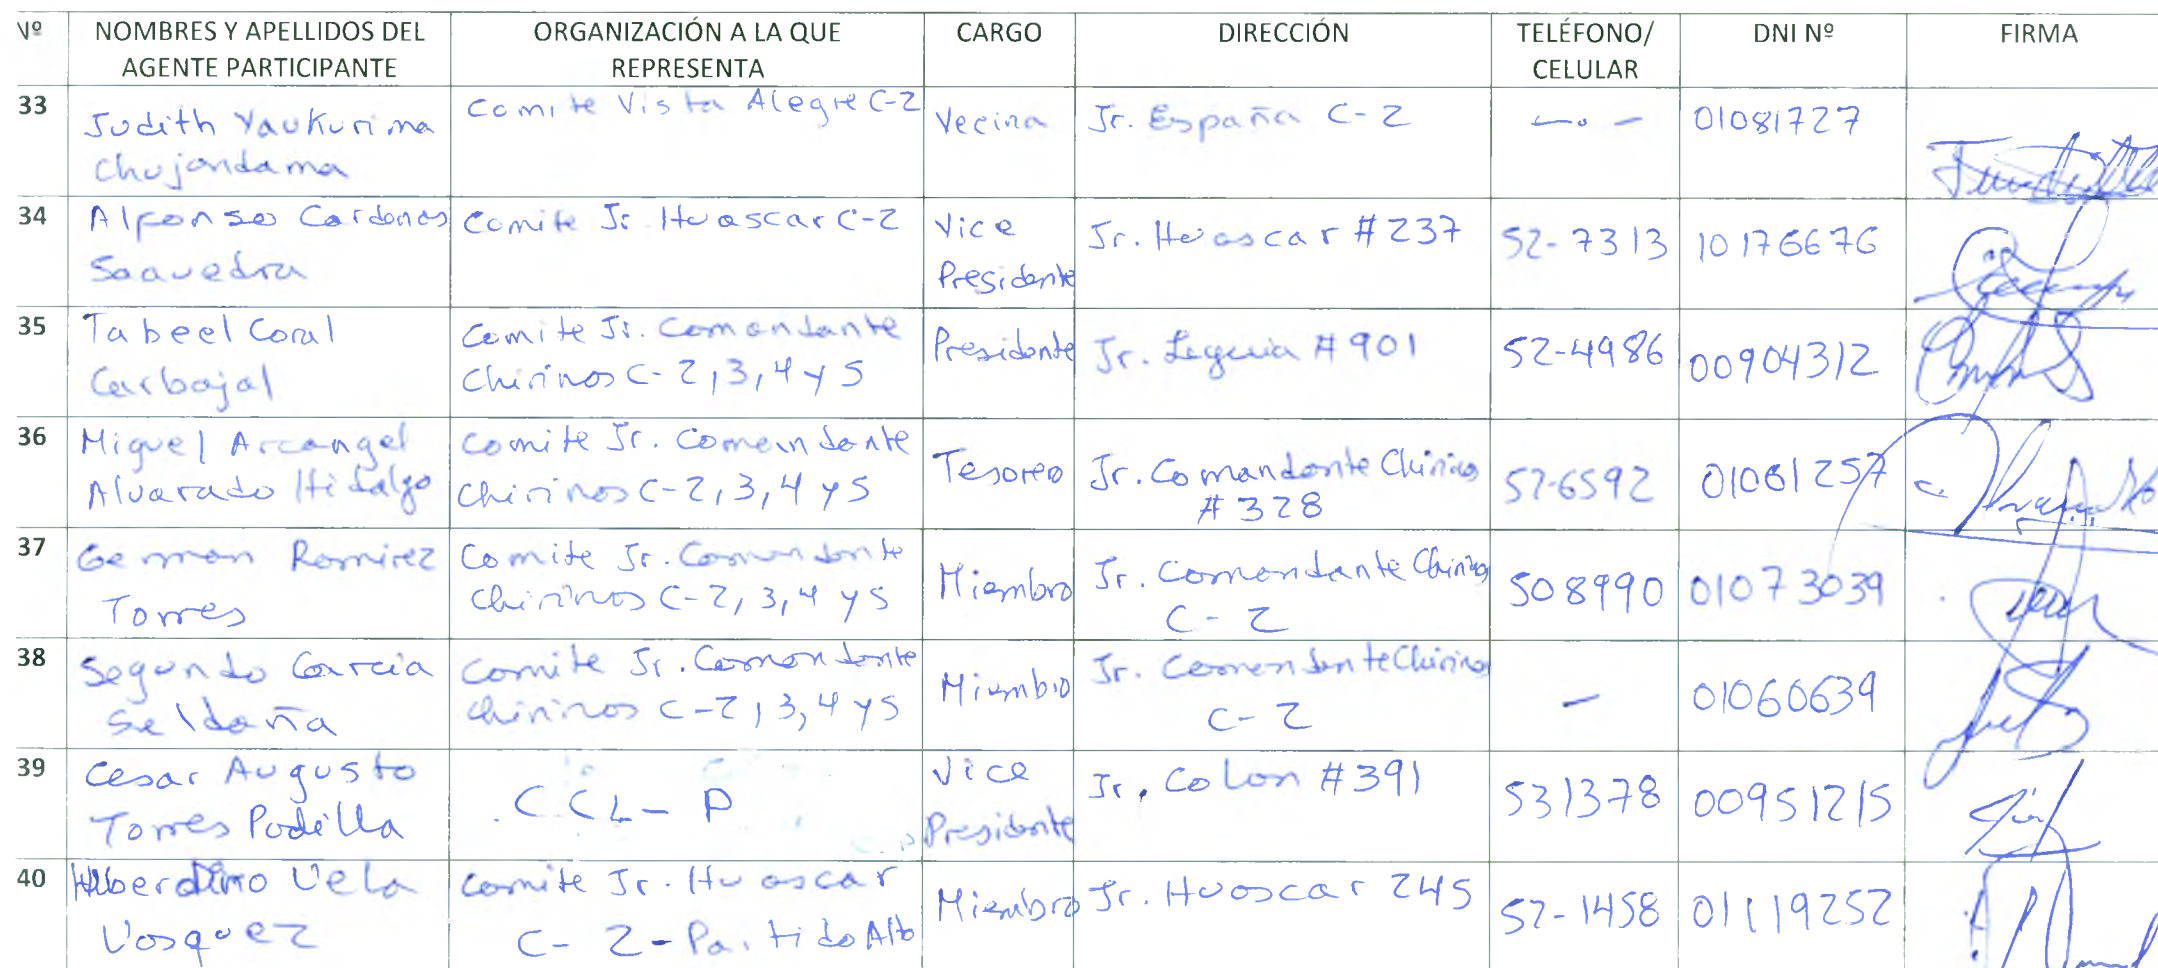 Nº NOMBRES Y APELLIDOS DEL AGENTE PARTICIPANTE ORGANIZACIÓN A LA QUE REPRESENTA CARGO DIRECCIÓN TELÉFONO/ CELULAR DNI Nº FIRMA
33 Judith Yaukurima Chujandama Comite Vista Alegre C-2 Vecina Jr. España C-2 - - 01081727
34 Alfonso Cardenas Saavedra Comite Jr. Huascar C-2 Vice Presidente Jr. Huascar #237 52-7313 10176676
35 Tabeel Coral Carbajal Comite Jr. Comandante Chirinos C-2,3,4 y 5 Presidente Jr. Leguia #901 52-4986 00904312
36 Miguel Arcangel Alvarado Hidalgo Comite Jr. Comandante Chirinos C-2,3,4 y 5 Tesorero Jr. Comandante Chirinos #328 52-6592 01081257
37 German Ramirez Torres Comite Jr. Comandante Chirinos C-2,3,4 y 5 Miembro Jr. Comandante Chirinos C-2 508990 01073039
38 Segundo Garcia Saldaña Comite Jr. Comandante Chirinos C-2,3,4 y 5 Miembro Jr. Comandante Chirinos C-2 - 01060639
39 Cesar Augusto Torres Padilla CCL-P Vice Presidente Jr. Colon #391 531378 00951215
40 Vela Vasquez Comite Jr. Huascar C-2-Partido Alto Miembro Jr. Huascar 245 52-1458 01119252